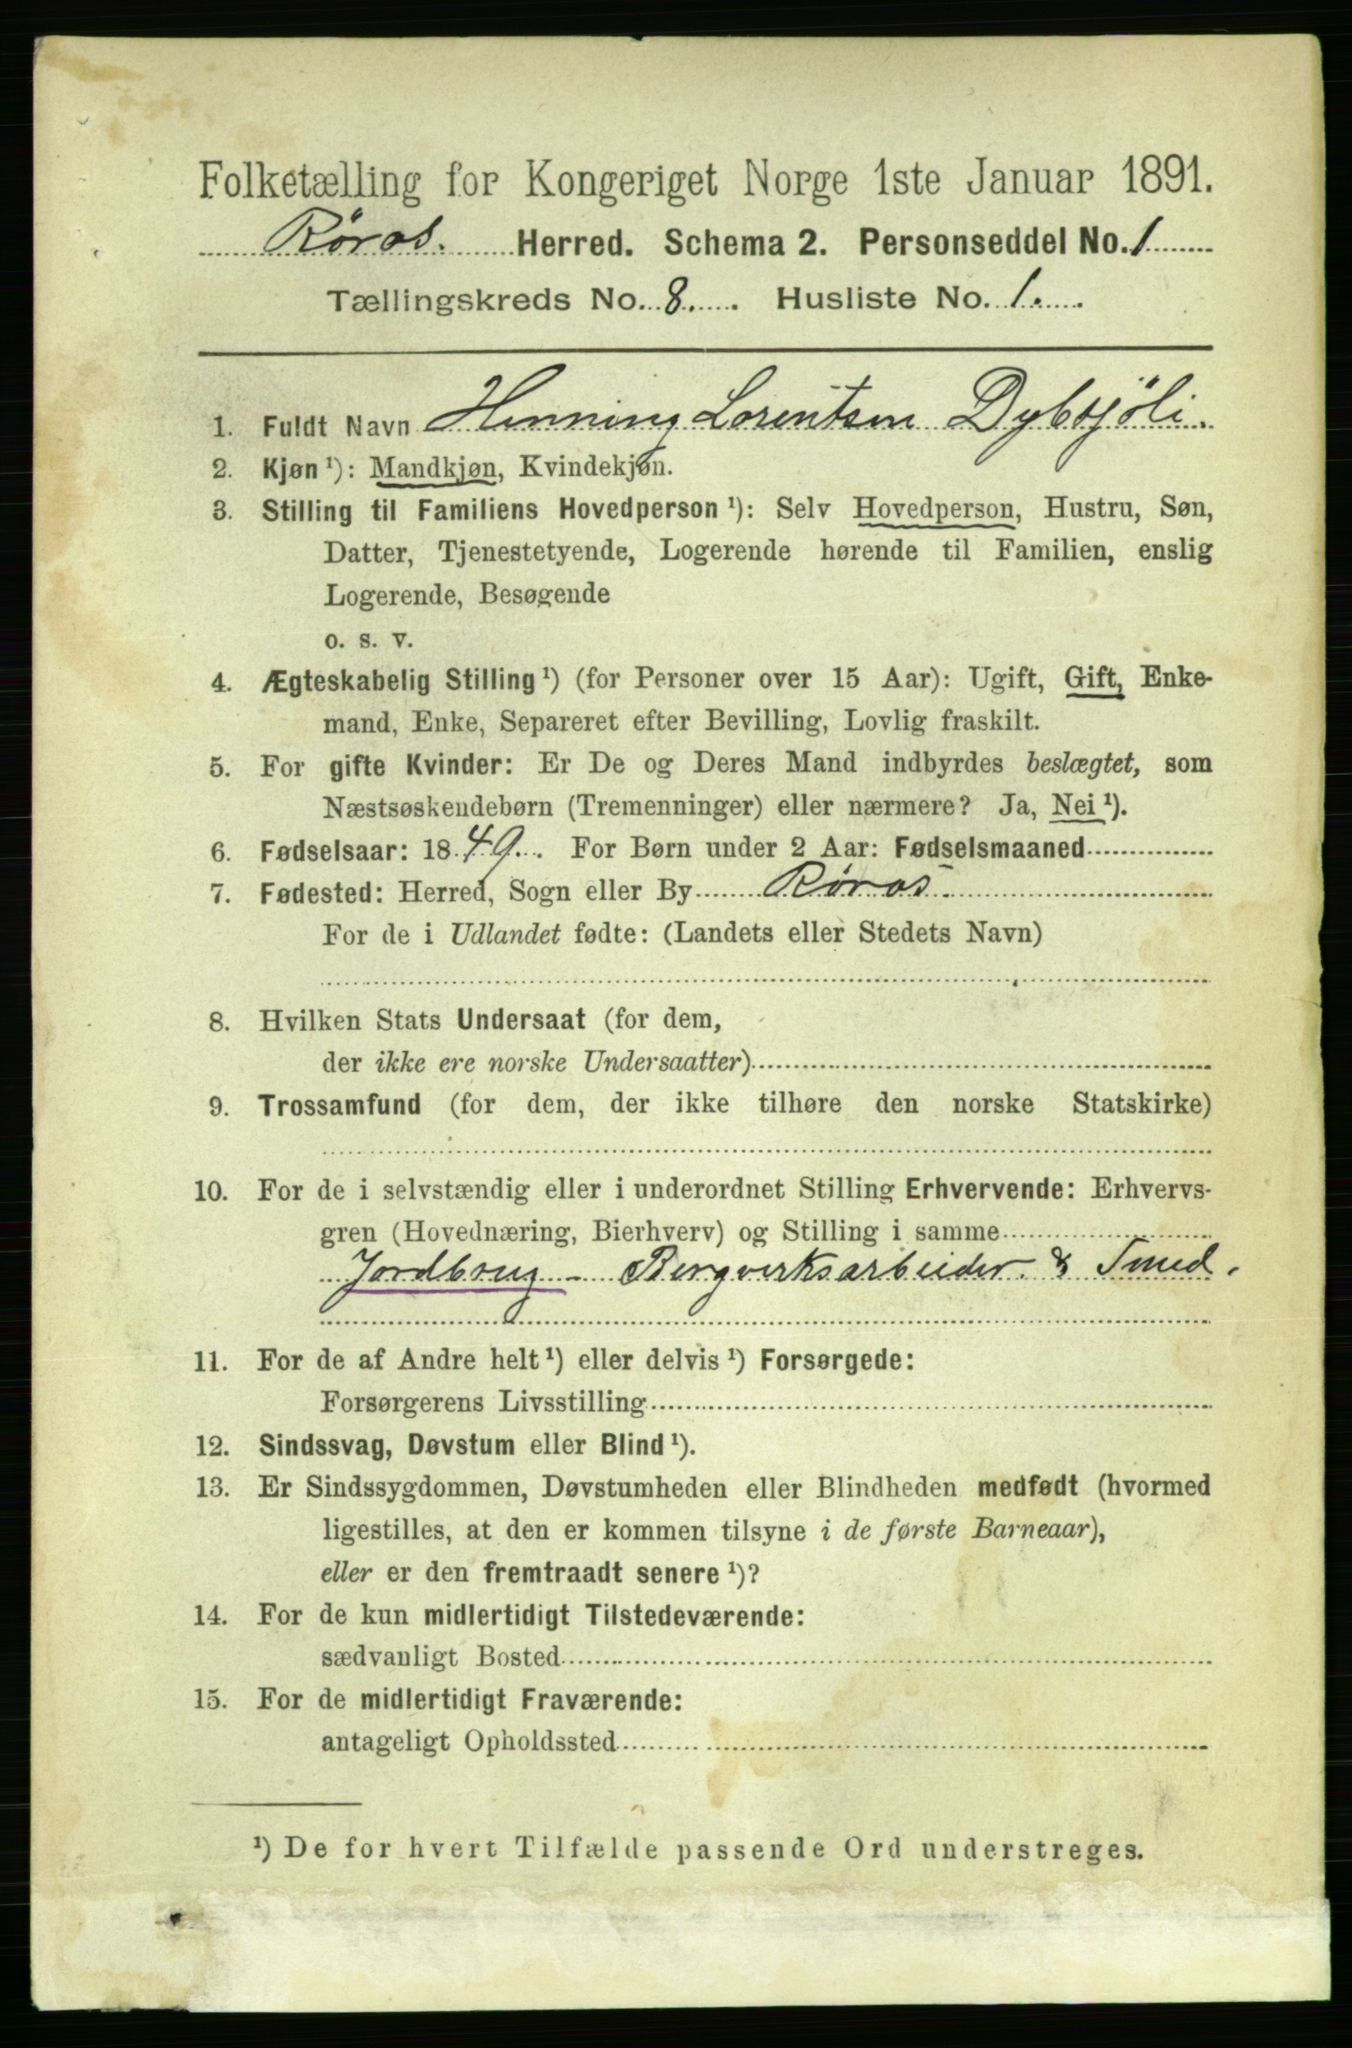 Folketælling for Kongeriget Norge 1ste Januar 1891.
Røros. Herred. Schema 2. Personseddel No. 1
Tællingskreds No. 8. Husliste No. 1.
1. Fuldt Navn Henning Lorentsen Dybsjöli.
2. Kjøn ¹): Mandkjøn, Kvindekjøn.
3. Stilling til Familiens Hovedperson ¹): Selv Hovedperson, Hustru, Søn,
Datter, Tjenestetyende, Logerende hørende til Familien, enslig
Logerende, Besøgende
o. s. v.
4. Ægteskabelig Stilling ¹) (for Personer over 15 Aar): Ugift, Gift, Enke-
mand, Enke, Separeret efter Bevilling, Lovlig fraskilt.
5. For gifte Kvinder: Er De og Deres Mand indbyrdes beslægtet, som
Næstsøskendebørn (Tremenninger) eller nærmere? Ja, Nei ¹).
6. Fødselsaar: 1849. For Børn under 2 Aar: Fødselsmaaned
7. Fødested: Herred, Sogn eller By Røros.
For de i Udlandet fødte: (Landets eller Stedets Navn)
8. Hvilken Stats Undersaat (for dem,
der ikke ere norske Undersaatter)
9. Trossamfund (for dem, der ikke tilhøre den norske Statskirke)
10. For de i selvstændig eller i underordnet Stilling Erhvervende: Erhvervs-
gren (Hovednæring, Bierhverv) og Stilling i samme
Jordbrug - Bergverksarbeider & Smed.
11. For de af Andre helt ¹) eller delvis ¹) Forsørgede:
Forsørgerens Livsstilling
12. Sindssvag, Døvstum eller Blind ¹).
13. Er Sindssygdommen, Døvstumheden eller Blindheden medfødt (hvormed
ligestilles, at den er kommen tilsyne i de første Barneaar),
eller er den fremtraadt senere ¹)?
14. For de kun midlertidigt Tilstedeværende:
sædvanligt Bosted
15. For de midlertidigt Fraværende:
antageligt Opholdssted
¹) De for hvert Tilfælde passende Ord understreges.